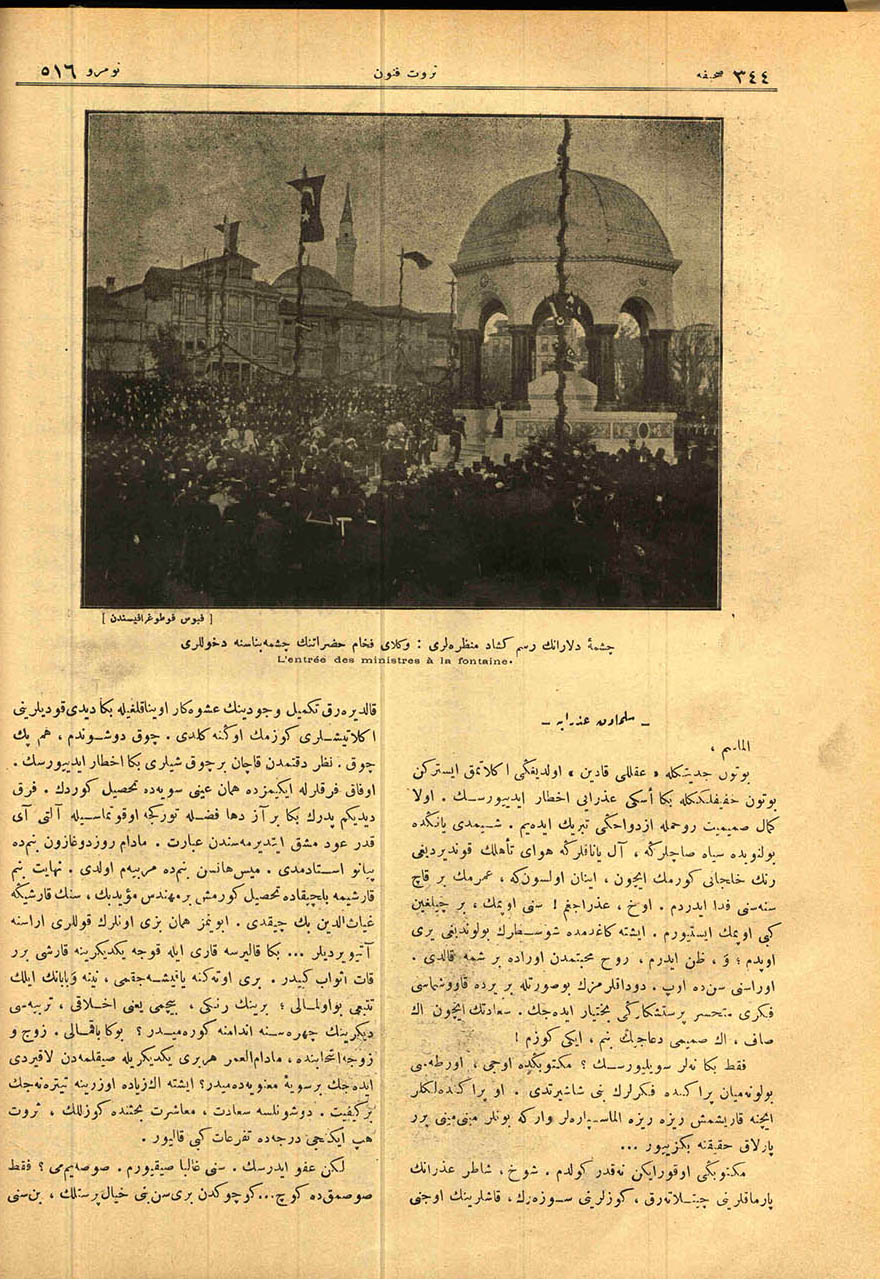 ٣٤٤ صحيفه
ثروت فنون
نومرو ٥١٦
[ فبوس فوطوغرافيسندن ]
چشمهٔ دلارانك رسم كشاد منظره‌لرى : وكلاى فخام حضراتنك چشمه بناسنه دخوللرى
L'entrée des ministres à la fontaine.
ـ سلمادن عذرايه ـ
الماسم ،
بوتون جديتكله « عقللى قادين » اولديغكى اكلاتمق ايستركن
بوتون خفيفلككله بكا اسكى عذرايى اخطار ايدييورسك . اولا
كمال صميميت روحمله ازدواجكى تبريك ايده‌يم . شيمدى يانكده
بولنوبده سياه صاچلركه ، آل ياناقلركه هواى تأهلك قونديرديغى
رنك خلجانى كورمك ايچون ، اينان اولسون‌كه ، عمرمك بر قاچ
سنه‌سنى فدا ايدردم . اوخ ، عذراجغم ! سنى اوپمك ، بر چيلغين
كبى اوپمك ايستيورم . ايشته كاغدمده شو سطرك بولونديغى يرى
اوپدم ؛ ظن ايدرم ، روح محبتمدن اوراده بر شمه قالدى .
اوراسنى سن‌ده اوپ . دوداقلرمزك بو صورتله بر يرده قاووشماسى
فكرى متحسر پرستشكاركى بختيار ايده‌جك . سعادتك ايچون اك
صاف ، اك صميمى دعاجيك بنم ، ايكى كوزم !
فقط بكا نه‌لر سويليورسك ؟ مكتوبكده اوجى ، اورطه‌سى
بولونه‌ميان پراكنده فكرلرك بنى شاشيرتدى . او پراكنده‌لكلر
ايچنه قاريشمش ريزه ريزه الماسپاره‌لر واركه بونلر مينى مينى برر
پارلاق حقيقته بكزييور ...
مكتوبكى اوقوركن نه‌قدر كولدم . شوخ ، شاطر عذرانك
پارماقلرينى چيتلاته‌رق ، كوزلرينى سوزه‌رك ، قاشلرينك اوجنى
قالديره‌رق تكميل وجودينك عشوه‌كار اويناقلغيله بكا ديدى قوديلرينى
اكلاتيشلرى كوزمك اوكنه كلدى . چوق دوشوندم ، هم پك
چوق . نظر دقتمدن قاچان بر چوق شيلرى بكا اخطار ايدييورسك .
اوفاق فرقلرله ايكيمزده همان عينى سويه‌ده تحصيل كوردك . فرق
ديديكم پدرك بكا بر آز دها فضله توركجه اوقوتماسيله آلتى آى
قدر عود مشق ايتديرمه‌سندن عبارت . مادام روزدوغازون بنم‌ده
پيانو استادمدى . ميس هانسن بنم‌ده مربيه‌م اولدى . نهايت بنم
قارشيمه بلچيقاده تحصيل كورمش بر مهندس مؤيدبك ، سنك قارشيكه
غياث‌الدين بك چيقدى . ابوينمز همان بزى اونلرك قوللرى اراسنه
آتيويرديلر ... بكا قاليرسه قارى ايله قوجه يكديكرينه قارشى برر
قات اثواب كبيدر . برى اوته‌كنه ياقيشه‌جقمى ،
تتميمى بو اولمالى ؛ برينك رنكى ، بيچمى يعنى اخلاقى ، تربيه‌سى
ديكرينك چهره‌سنه اندامنه كوره‌ميدر ؟ بوكا باقمالى . زوج و
زوجه انتخابنده ، مادام‌العمر هر برى يكديكريله صيقلمه‌دن لاقيردى
ايده‌جك بر سويهٔ معنويه‌ده‌ميدر؟ ايشته اك زياده اوزرينه تيتره‌نه‌جك
بر كيفيت . دوشونلسه سعادت ، معاشرت بحثنده كوزللك ، ثروت
هپ ايكنجى درجه‌ده تفرعات كبى قاليور .
لكن عفو ايدرسك . سنى غالبا صيقيورم . صوصه‌يم‌مى ؟ فقط
صوصمق‌ده كوچ... كوچوكدن برى سن بنى خيال پرستلك ، بن سنى